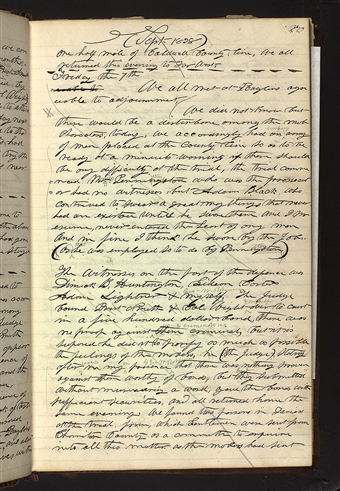 (Sept. 1838)
one half mile of Caldwell County line, We all
returned this evening to Far West.
Friday the 7th
We all met at Raglins agre-
eable to adjournment.
We did not know but
there would be a disturbance among the mob
Characters, today, we accordingly had an army
of men placed at the County line so as to be
ready at a minute's warning if there should
be any difficulty at the trial, the trial comm-
enced, Mr. Penningston who was the prosecut-
or had no witnesses but Adam Black who
contrived to swear a great many things that never
had an existence until he swore them And I pre-
sume, never entered the heart of any man
And in fine I think he swore by the job.
(Or he was employed so to do by Penningston)
The Witnesses on the part of the defence was
Dimick B. Huntington, Gideon Carter
Adam Lightner & Myself. The Judge
bound Prest Smith & Col. Wight over to court
in a five hundred dollar bond, there was
no proof against them to criminate them, but it is sup-
posed he did it to pacify as much as possible
the feelings of the mobers, he (the Judge) stated
after in my presence that there was nothing proven
against them worthy of bonds, but they submitted
without murmuring a word, gave the bonds with
sufficient securities, and all returned home the
same evening. We found two persons in Daviess
at the trial, from, which Gentlemen were sent from
Chariton County as a committe to enquire
into all this matter as the mobers had sent